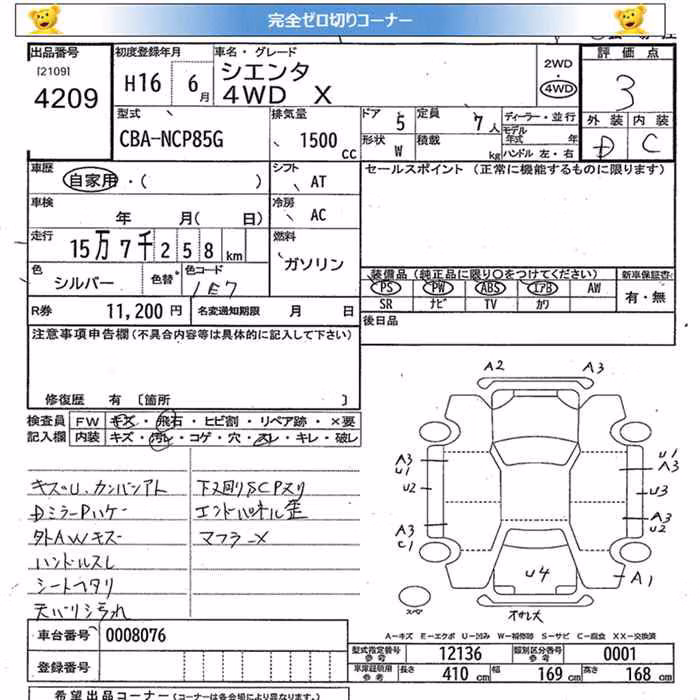 完全ゼロ切りコーナー
出品番号 初度登録年月 車名・グレード 評価点
[2109] 4209 H16 6月 シエンタ 4WD X 2WD 4WD 3
型式 排気量 ドア 5 定員 7人 ディーラー・並行 外装 内装
CBA-NCP85G 1500cc 形状 W 積載 kg モデル年式 年 ハンドル 左・右 D C
車歴 自家用・( ) シフト AT セールスポイント (正常に機能するものに限ります)
車検 年 月( 日) 冷房 AC
走行 15万7千258km 燃料 ガソリン
色 シルバー 色替 色コード 1E7
装備品(純正品に限り○をつけてください) 新車保証書
PS PW ABS エアB AW 有・無
SR ナビ TV カワ
R券 11,200円 名変通知期限 月 日 後日品
注意事項申告欄(不具合内容等は具体的に記入して下さい)
修復歴 有 [箇所 ]
検査員 FW キズ・飛石・ヒビ割・リペア跡・×要
記入欄 内装 キズ・汚レ・コゲ・穴・スレ・キレ・破レ
キズU、カンバンアト 下又回りSCPスリ
DミラーPハゲ エンドパネル歪
外AWキズ マフラーX
ハンドルスレ
シートヘタリ
天バリ汚れ
A2 A3
A3 U1 U1 A3
U2 U3
A3 C1 A3 U2
U4 A1
スペア
A-キズ E-エクボ U-凹み W-補修跡 S-サビ C-腐食 XX-交換済
車台番号 0008076
型式指定番号 参考 12136 類別区分番号 参考 0001
登録番号 車庫証明用 参考 長さ 410cm 幅 169cm 高さ 168cm
希望出品コーナー(コーナーは各会場により異なります。)